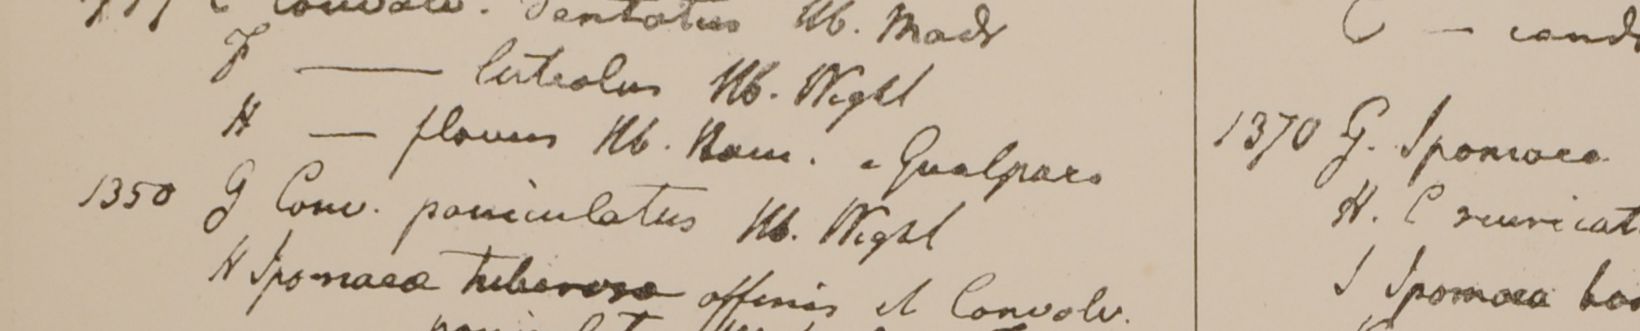 C Convolv. dentatus Hb. Madr
F — luteolus Hb. Wight
H — flavus Hb. Ham. Gualpara
1350 G Conv. paniculatus Hb. Wight
H Ipomaea tuberosa affinis et Convolv.
C —
1370 G. Ipomoea
H. C muricat
I Ipomoea